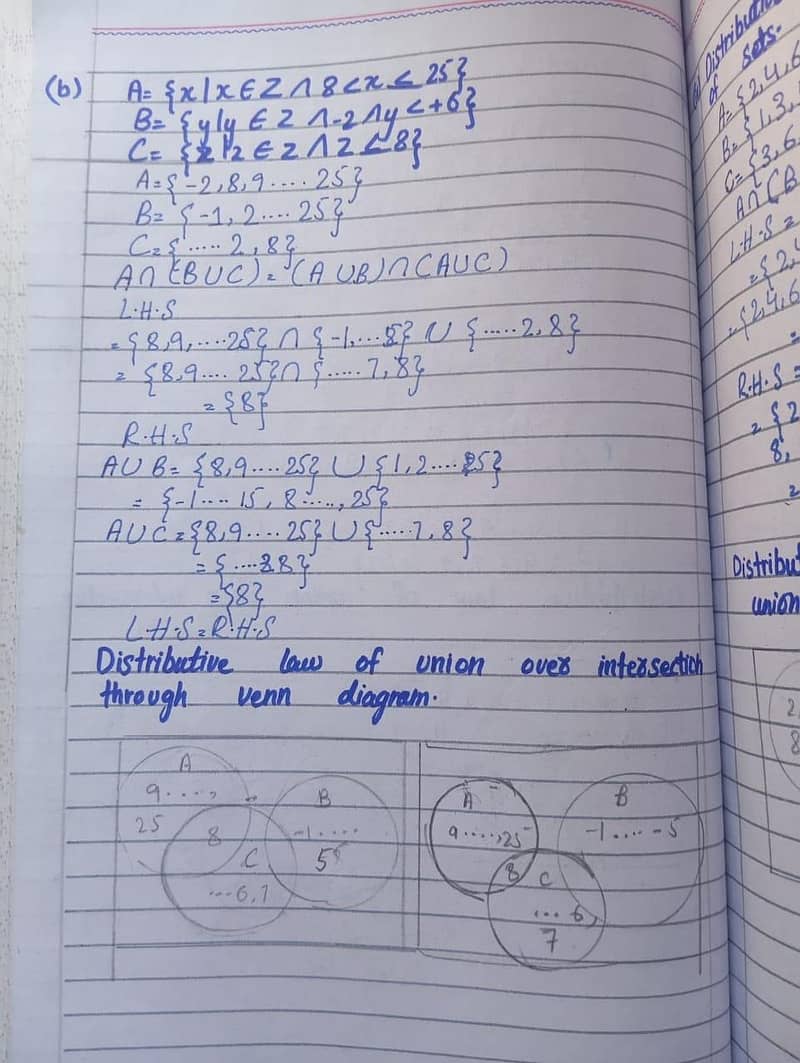 (b) A= {x|x∈Z∧8<x≤25}
B= {y|y∈Z∧-2∧y<+6}
C= {z|z∈Z∧Z≤8}
A={-2,8,9....25}
B= {-1,2....25}
C={.....2,8}
A∩(B∪C)=(A∪B)∩(A∪C)
L.H.S
={8,9,....25}∩{-1,...5}∪{.....2,8}
= {8,9....25}∩{.....7,8}
={8}
R.H.S
A∪B= {8,9....25}∪{1,2....25}
= {-1....15,8....,25}
A∪C={8,9....25}∪{....7,8}
={....88}
={8}
L.H.S=R.H.S
Distributive law of union over intersection
through venn diagram.
A
9....,
25
8
C
...6,7
B
-1....
5
A
9....,25
8
C
...6,
7
B
-1....-5
(a) Distributive
of sets.
A={2,4,6
B={1,3,
C={3,6,
A∩(B
L.H.S=
={2,4
={2,4,6
=
R.H.S=
={2
8,
=
Distribut
union
2,
8